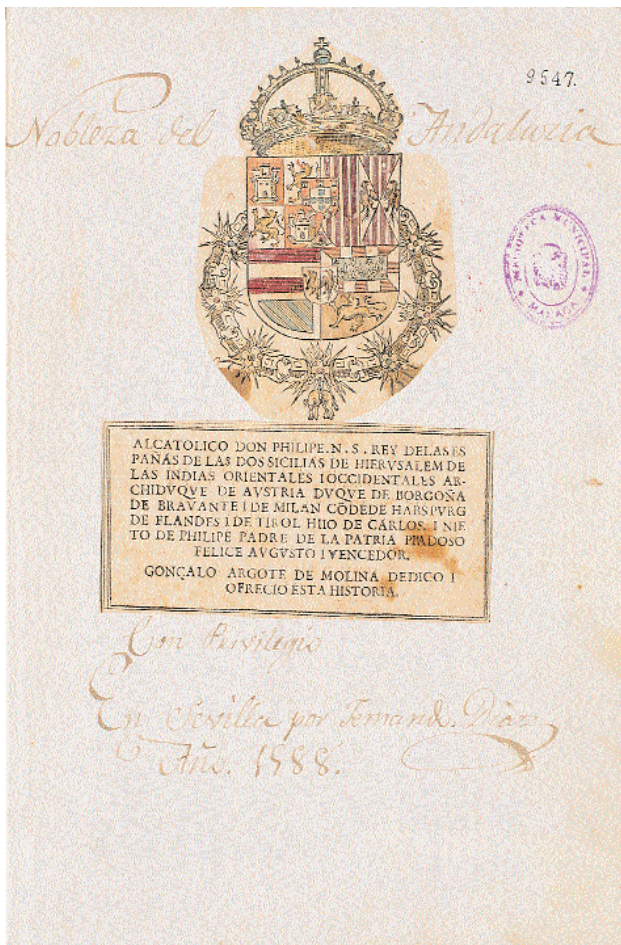 9547.
Nobleza del Andaluzia
BIBLIOTECA MUNICIPAL
MALAGA
ALCATOLICO DON PHILIPE. N. S. REY DELAS ES
PAÑAS DE LAS DOS SICILIAS DE HIERVSALEM DE
LAS INDIAS ORIENTALES I OCCIDENTALES AR-
CHIDVQVE DE AVSTRIA DVQVE DE BORGOÑA
DE BRAVANTE I DE MILAN CÕDE DE HABSPVRG
DE FLANDES I DE TIROL HIIO DE CARLOS. I NIE
TO DE PHILIPE PADRE DE LA PATRIA PIADOSO
FELICE AVGVSTO I VENCEDOR.
GONÇALO ARGOTE DE MOLINA DEDICO I
OFRECIO ESTA HISTORIA.
Con Previlegio
En Sevilla por Fernando Diaz
Año. 1588.